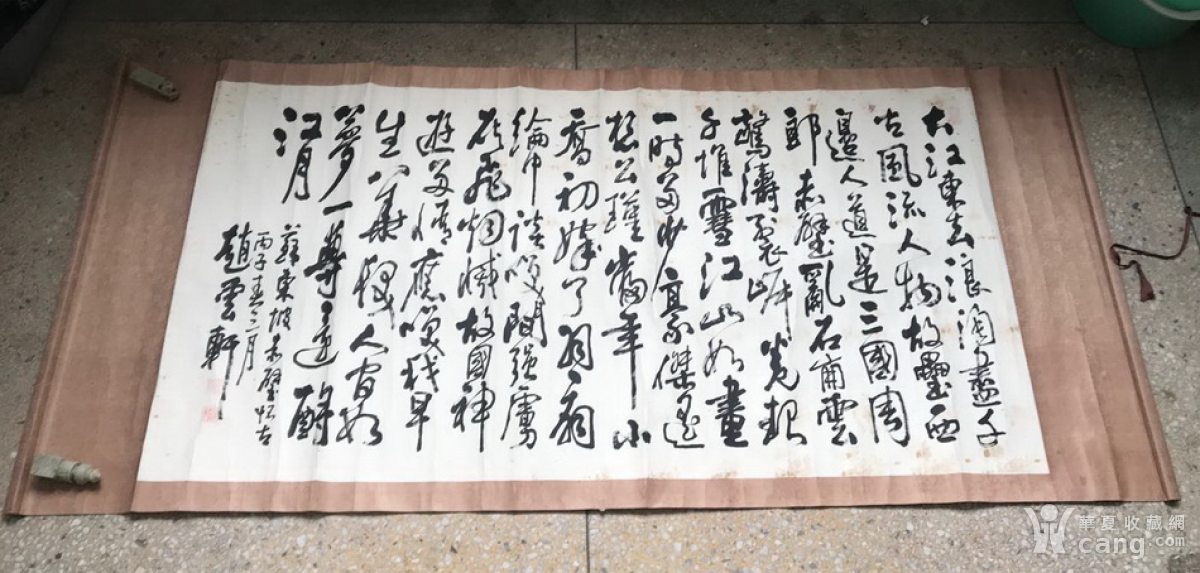 大江東去浪淘盡千
古風流人物故壘西
邊人道是三國周
郎赤壁亂石崩雲
驚濤裂岸卷起
千堆雪江山如畫
一時多少豪傑遙
想公瑾當年小
喬初嫁了羽扇
綸巾談笑間强虜
灰飛烟滅故國神
遊多情應笑我早
生華髮人間如
夢一尊還酹
江月
蘇東坡赤壁怀古
丙子春三月
趙雲軒
華夏收藏網
cang.com